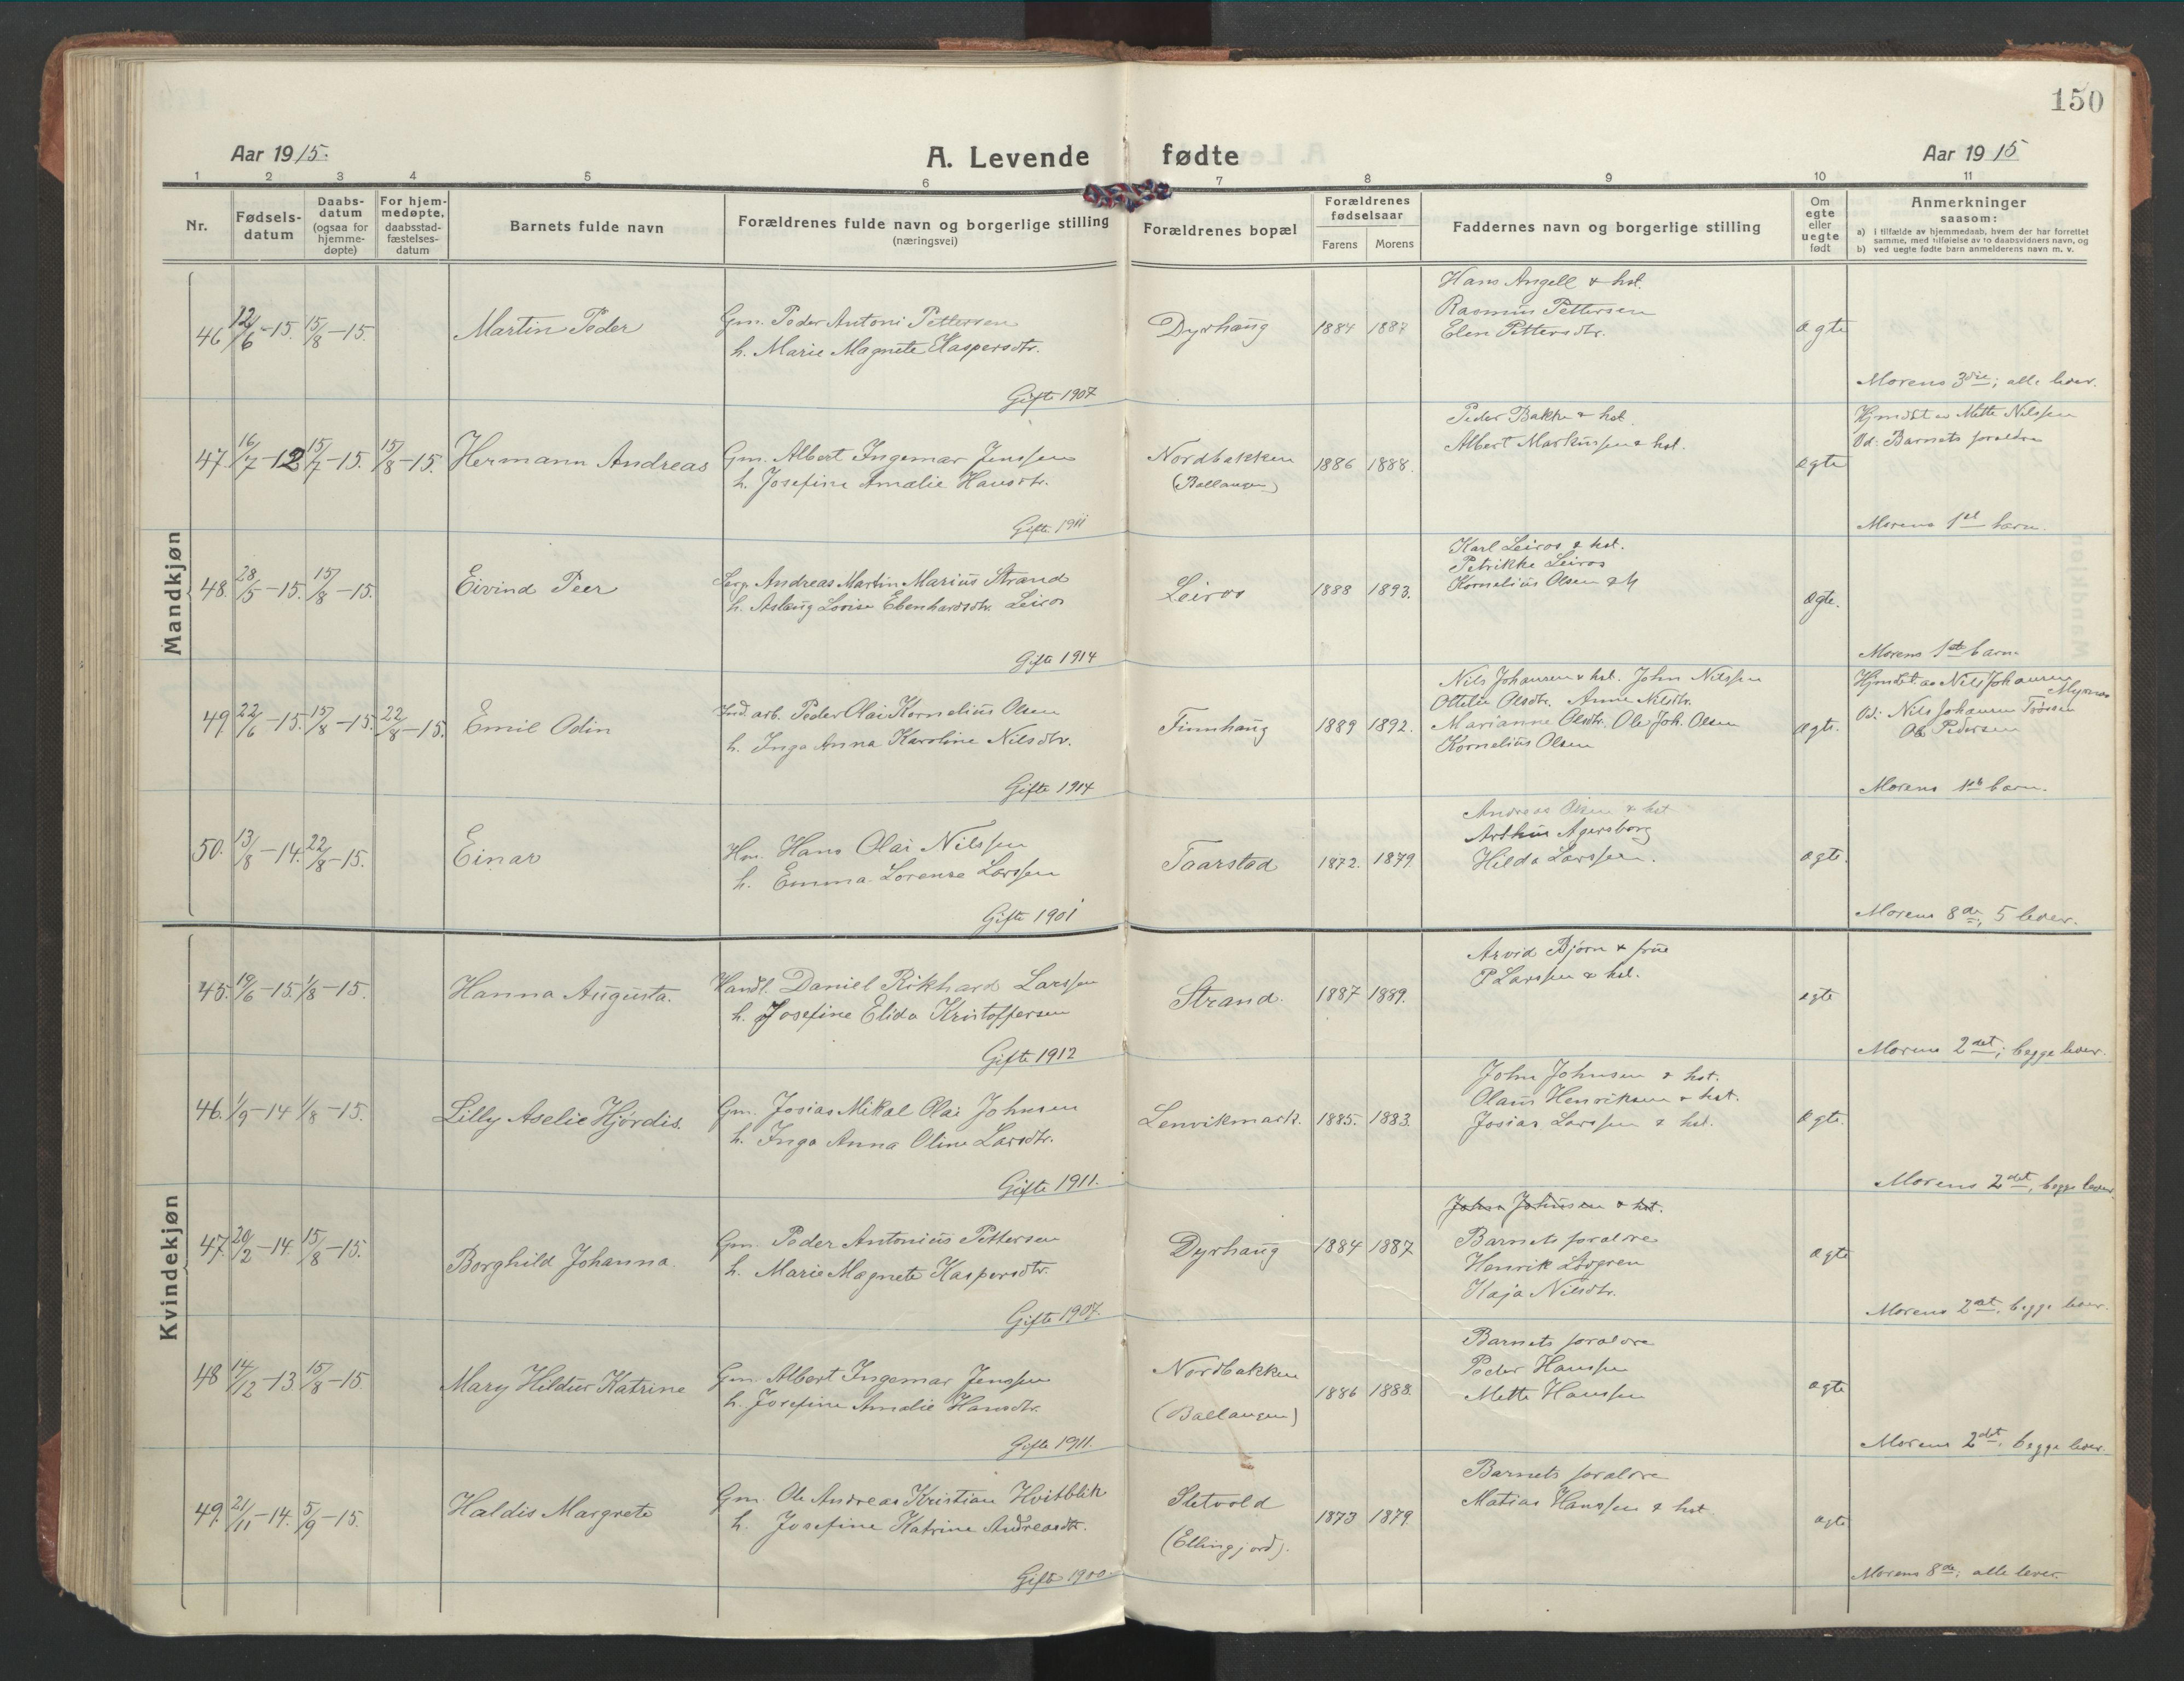 150
Aar 1915.
A. Levende fødte
Aar 1915
1 2 3 4 5 6 7 8 9 10 11
Nr.
Fødsels-
datum
Daabs-
datum
(ogsaa for
hjemme-
døpte)
For hjem-
medøpte,
daabsstad-
fæstelses-
datum
Barnets fulde navn
Forældrenes fulde navn og borgerlige stilling
(næringsvei)
Forældrenes bopæl
Forældrenes
fødselsaar
Farens Morens
Faddernes navn og borgerlige stilling
Om
egte
eller
uegte
født
Anmerkninger
saasom:
a) i tilfælde av hjemmedaab, hvem der har forrettet
samme, med tilføielse av to daabsvidners navn, og
b) ved uegte fødte barn anmelderens navn m. v.
Mandkjøn
46 12/6-15. 15/8-15.
Martin Peder
Gm. Peder Antoni Pettersen
h. Marie Magnete Kaspersdtr.
Gifte 1907
Dyrhaug
1884 1887
Hans Angell & hst.
Rasmus Pettersen
Elen Pettersdtr.
ægte
Morens 3die; alle lever.
47. 16/7-12 15/7-15. 15/8-15.
Hermann Andreas
Gm. Albert Ingemar Jenssen
h. Josefine Amalie Hansdtr.
Gifte 1911
Nordbakken
(Ballangen)
1886 1888.
Peder Bakke & hst.
Albert Markussen & hst.
ægte
Hjmdbt av Mette Nilssen
Od: Barnets forældre
Morens 1st barn.
48. 28/5-15. 15/8-15.
Eivind Peer
Andreas Martin Marius Strand
h. Aslaug Lovise Ebenhardsdtr. Leiros
Gifte 1914
Leiros
1888 1893.
Karl Leiros & hst.
Petrikke Leiros
Kornelius Olsen & M
ægte.
Morens 1ste barn
49. 22/6-15. 15/8-15. 22/8-15.
Emil Odin
Ind. arb. Peder Olai Kornelius Olsen
h. Inga Anna Karoline Nilsdtr.
Gifte 1914
Finnhaug
1889 1892.
Nils Johansen & hst. John Nilssen
Ottelie Olsdtr. Anne Nilsdtr.
Marianne Olsdtr. Ole Joh. Olsen
Kornelius Olsen
ægte.
Hjmdbt. av Nils Johansen
Myrnes
Od: Nils Johansen
Ole Pedersen
Morens 1ste barn.
50. 13/8-14. 22/8-15.
Einar
Hm. Hans Olai Nilssen
h. Emma Lorense Larssen
Gifte 1901
Taarstad
1872. 1879.
Andreas Olsen & hst
Arthur Agersborg
Hilda Larssen.
ægte.
Morens 8de, 5 lever.
Kvindekjøn
45. 19/6-15. 1/8-15.
Hanna Augusta.
Handl. Daniel Rikhard Larssen
h. Josefine Elida Kristoffersen
Gifte 1912
Strand.
1887 1889.
Arvid Bjørn & frue
P Larssen & hst.
egte
Morens 2det; begge lever.
46. 1/9-14 1/8-15.
Lilly Aselie Hjørdis.
Gm. Josias Mikal Olai Johnsen
h. Inga Anna Oline Larsdtr.
Gifte 1911.
Lenvikmark.
1885. 1883.
John Johnsen & hst.
Olaus Henriksen & hst.
Josias Larssen & hst.
ægte.
Morens 2det, begge lever.
47. 20/2-14. 15/8-15.
Borghild Johanna.
Gm. Peder Antonius Pettersen
h. Marie Magnete Kaspersdtr.
Gifte 1907.
Dyrhaug
1884 1887
John Johnsen & hst.
Barnets forældre
Henrik Løvgren
Kaja Nilsdtr.
ægte
Morens 2det. begge lever.
48 14/12-13 15/8-15.
Mary Hildur Katrine
Gm. Albert Ingemar Jenssen
h. Josefine Amalie Hansdtr.
Gifte 1911.
Nordbakken
(Ballangen)
1886 1888.
Barnets forældre
Peder Hanssen
Mette Hanssen
ægte
Morens 2det. begge lever.
49. 21/11-14. 5/9-15.
Haldis Margrete
Gm. Ole Andreas Kristian Hvitblik
h. Josefine Katrine Andreasdtr.
Gifte 1900.
Sletvold
(Ellingjord).
1873 1879.
Barnets forældre
Matias Hanssen & hst.
ægte
Morens 8de; alle lever.